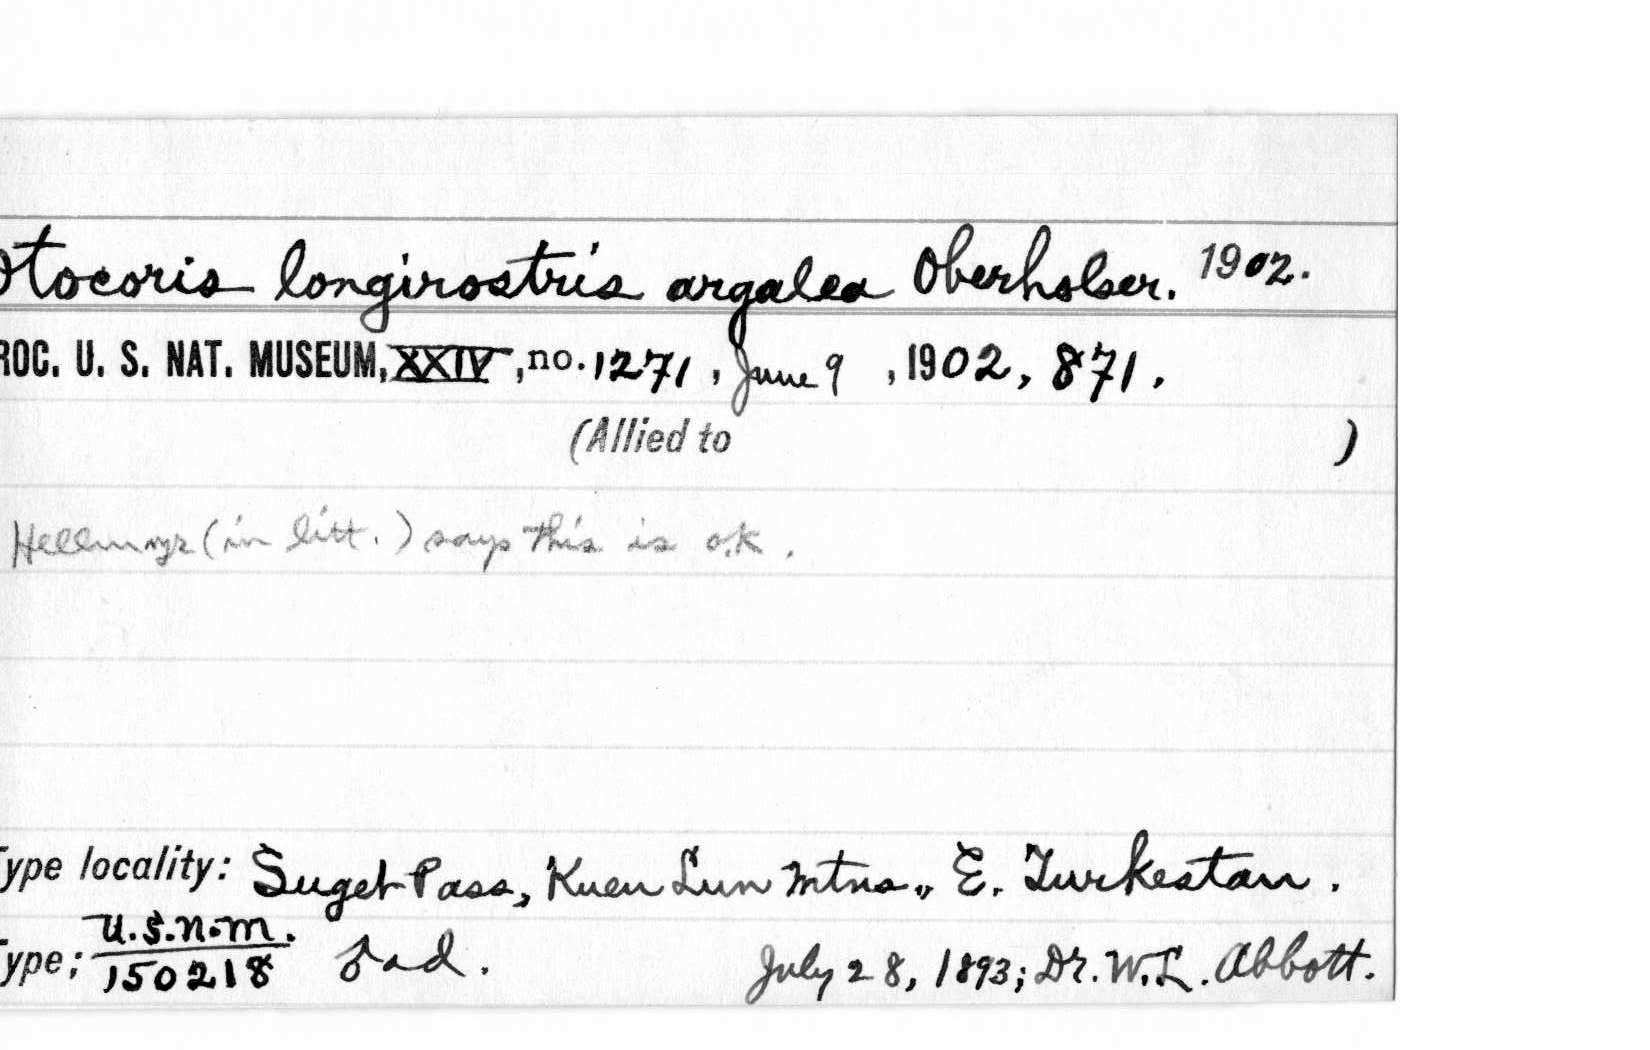 Otocoris longirostris argalea Oberholser. 1902.
ROC. U. S. NAT. MUSEUM, XXIV, no. 1271, June 9, 1902, 871.
(Allied to )
Hellmayr (in litt.) says this is o.k.
Type locality: Suget Pass, Kuen Lun Mtns., E. Turkestan.
Type; U.S.N.M. 150218 ad. July 28, 1893; Dr. W. L. Abbott.